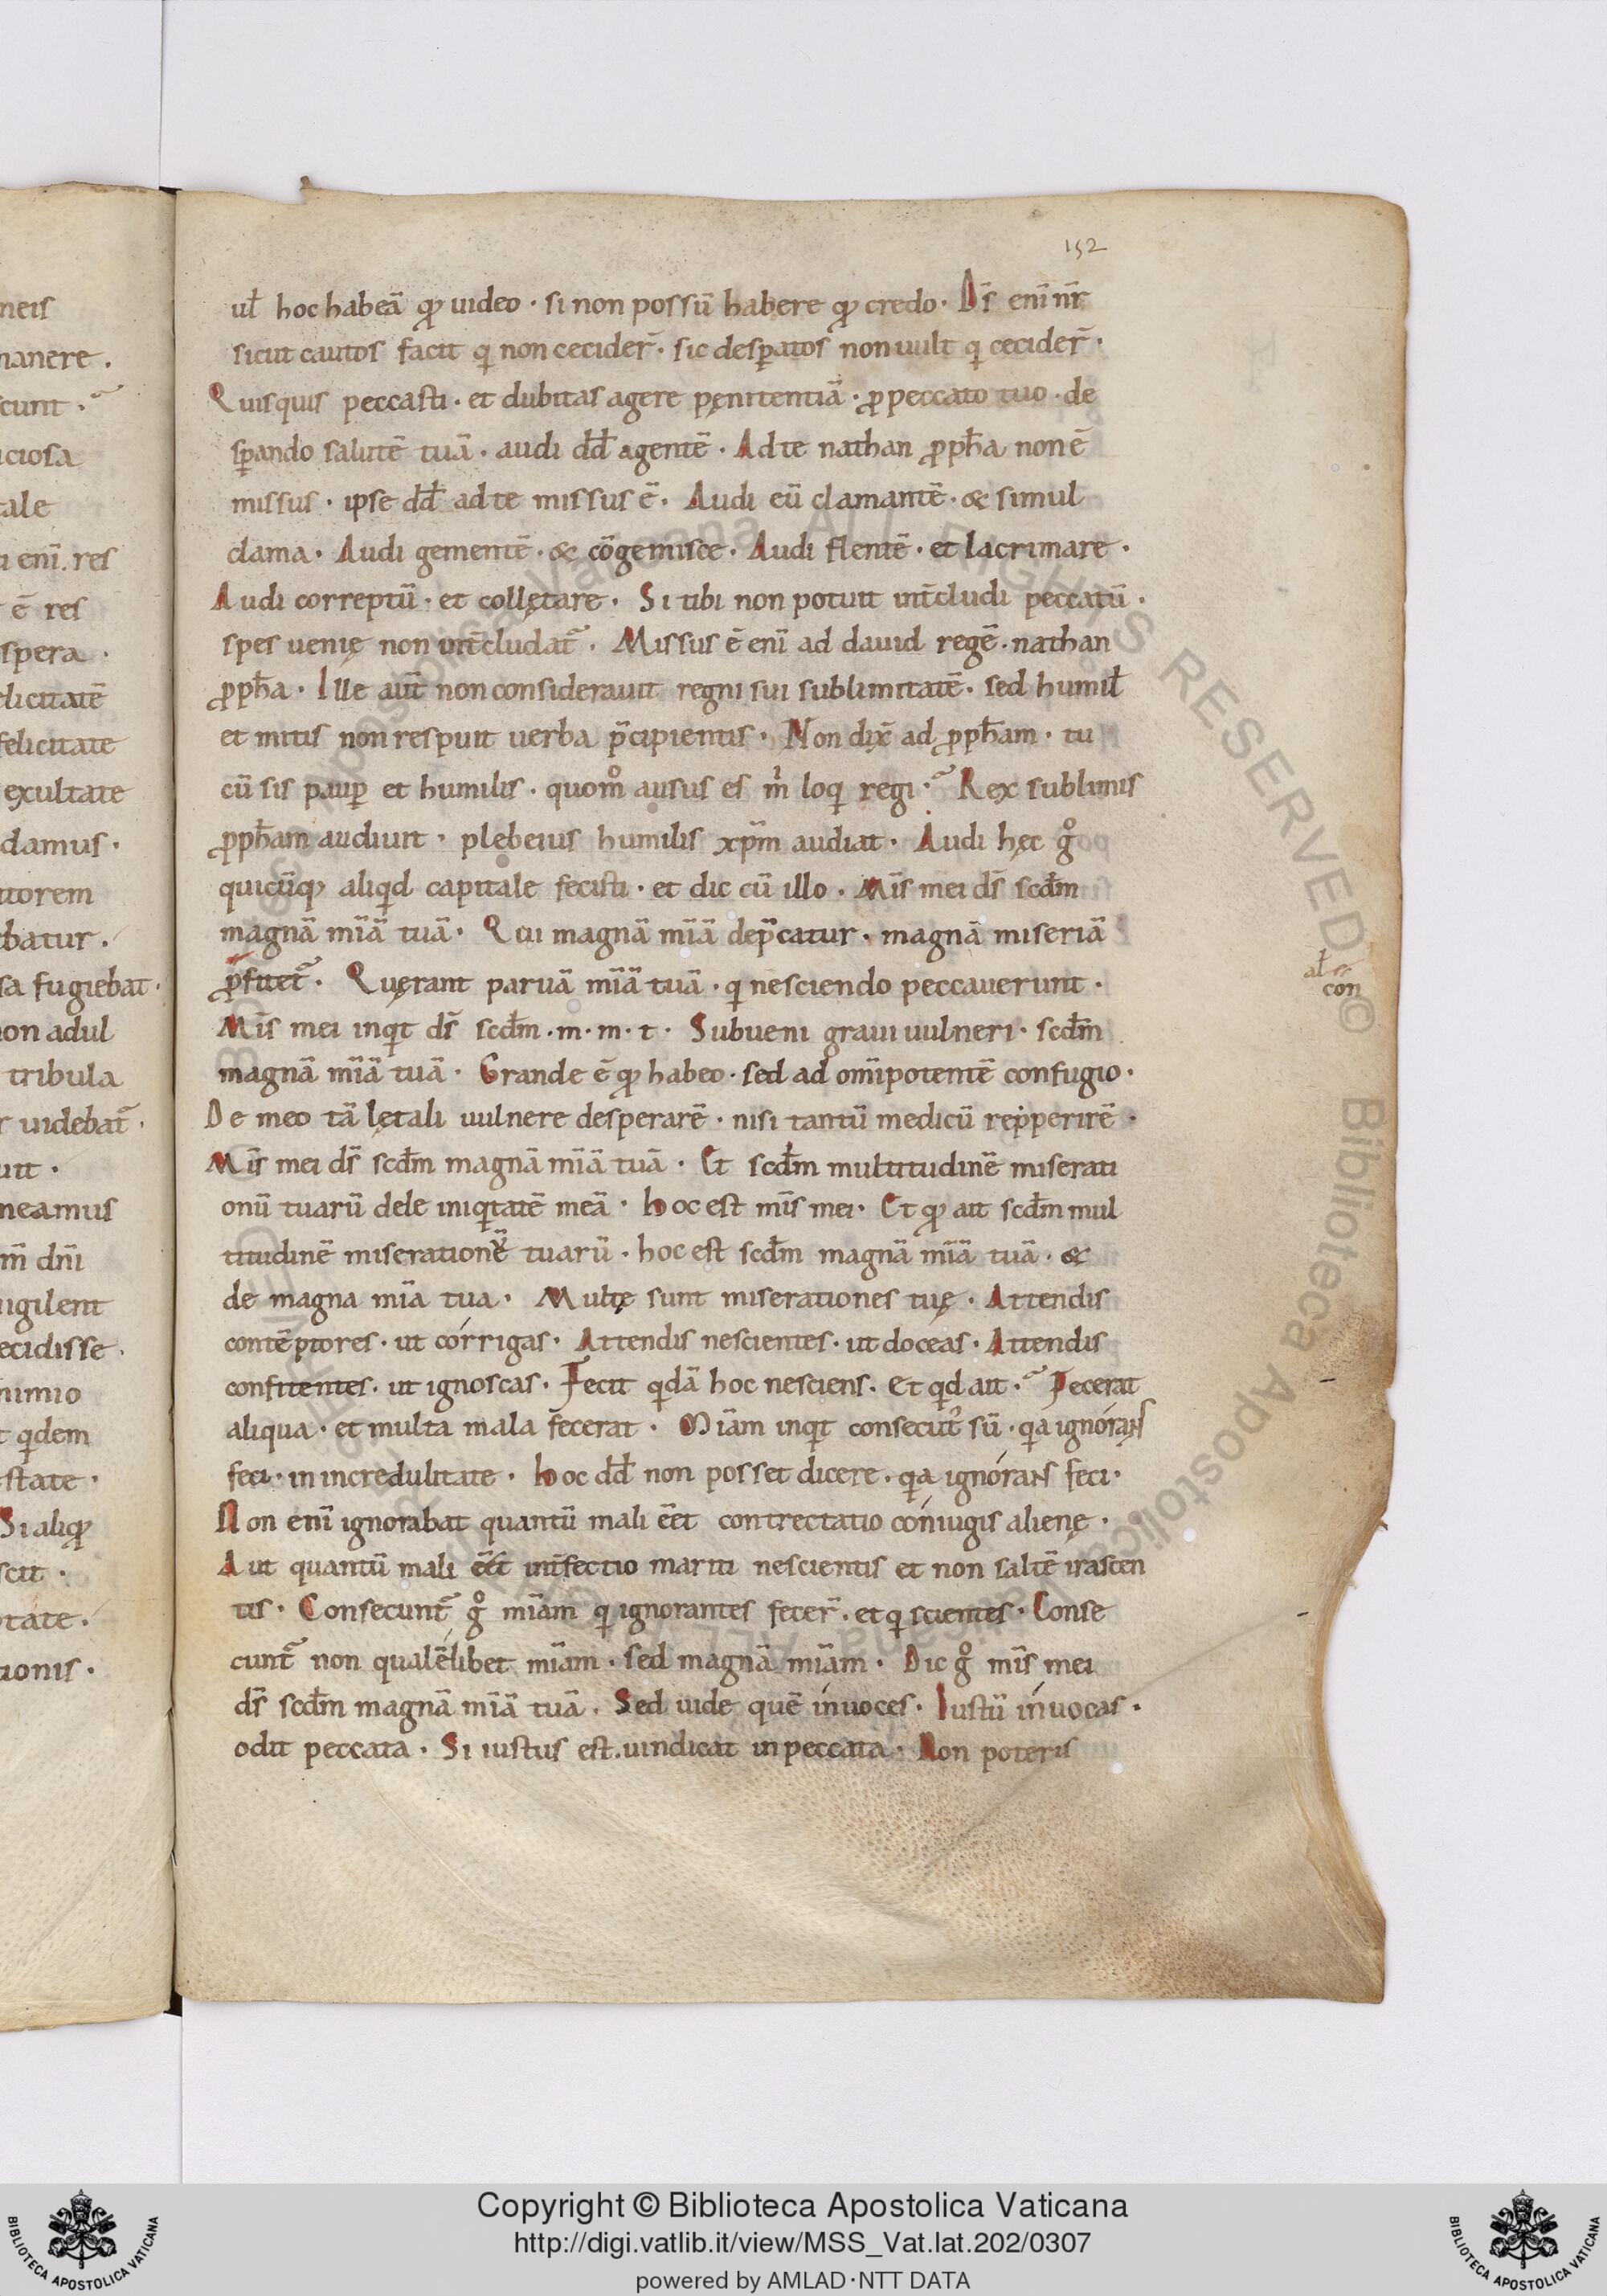 neis
manere .
cunt ·
iciosa
tale
i enī. res
ē res
spera ·
licitatē
felicitate
exultate
damus ·
utorem
ebatur .
sa fugiebat ·
non adul
tribula
r uidebat̄ .
uit ·
neamus
m̄ dn̄i
uigilent
ecidisse .
nimio
t qdem
state ·
Si aliqꝫ
scit ·
otate .
tionis .
152
ul̄ hoc habeā qꝫ uideo · si non possū habere qꝫ credo · Ds̄ enī nr̄
sicut cautos facit q non cecider̄ · sic desꝑatos non uult q cecider̄ ·
Quisquis peccasti · et dubitas agere pęnitentiā · ꝓ peccato tuo · de
sꝑando salutē tuā · audi dd̄ agentē · Ad te nathan ꝓph̄a non ē
missus · ipse dd̄ ad te missus ē · Audi eū clamantē · & simul
clama · Audi gementē · & cōgemisce · Audi flentē · et lacrimare ·
Audi correptū · et collętare · Si tibi non potuit int̄cludi peccatū ·
spes uenię non int̄cludat̄ · Missus ē enī ad dauid regē · nathan
ꝓph̄a · Ille aut̄ non considerauit regni sui sublimitatē · sed humil̄
et mitis non respuit uerba p̄cipientis · Non dix̄ ad ꝓph̄am · tu
cū sis pauꝑ et humilis · quomº ausus es mⁱ loq regi · Rex sublimis
ꝓph̄am audiuit · plebeius humilis xp̄m audiat · Audi hęc gº
quicūqꝫ aliqd capitale fecisti · et dic cū illo · Mis̄ mei ds̄ scd̄m
magnā mīā tuā · Qui magnā mīā dep̄catur · magnā miseriā
p̄fitet̄ · Quęrant paruā mīā tuā · q nesciendo peccauerunt ·
al̄ con
Mis̄ mei inqt ds̄ scd̄m · m · m · t · Subueni graui uulneri · scd̄m
magnā mīā tuā · Grande ē qꝫ habeo · sed ad om̄ipotentē confugio ·
De meo tā lętali uulnere desperarē · nisi tantū medicū repperirē ·
Mis̄ mei ds̄ scd̄m magnā mīā tuā · Et scd̄m multitudinē miserati
onū tuarū dele iniqtatē meā · hoc est mis̄ mei · Et qꝫ ait scd̄m mul
titudinē miserationē tuarū · hoc est scd̄m magnā mīā tuā · &
de magna mīa tua · Multę sunt miserationes tuę · Attendis
contēptores · ut corrigas · Attendis nescientes · ut doceas · Attendis
confitentes · ut ignoscas · Fecit qdā hoc nesciens · Et qd ait · Fecerat
aliqua · et multa mala fecerat · Mīam inqt consecut᷒ sū · qa ignorans
feci · in incredulitate · hoc dd̄ non posset dicere · qa ignorans feci ·
Non enī ignorabat quantū mali ēet contrectatio coniugis alienę ·
Aut quantū mali ēet int̄fectio mariti nescientis et non saltē irascen
tis · Consecunt̄ gº mīam q ignorantes fecer̄ · et q scientes · Conse
cunt̄ non qualēlibet mīam · sed magnā mīam · Dic gº mis̄ mei
ds̄ scd̄m magnā mīā tuā · Sed uide quē inuoces · Iustū inuocas ·
odit peccata · Si iustus est · uindicat in peccata · Non poteris
Copyright © Biblioteca Apostolica Vaticana
http://digi.vatlib.it/view/MSS_Vat.lat.202/0307
powered by AMLAD·NTT DATA
BIBLIOTECA APOSTOLICA VATICANA
BIBLIOTECA APOSTOLICA VATICANA